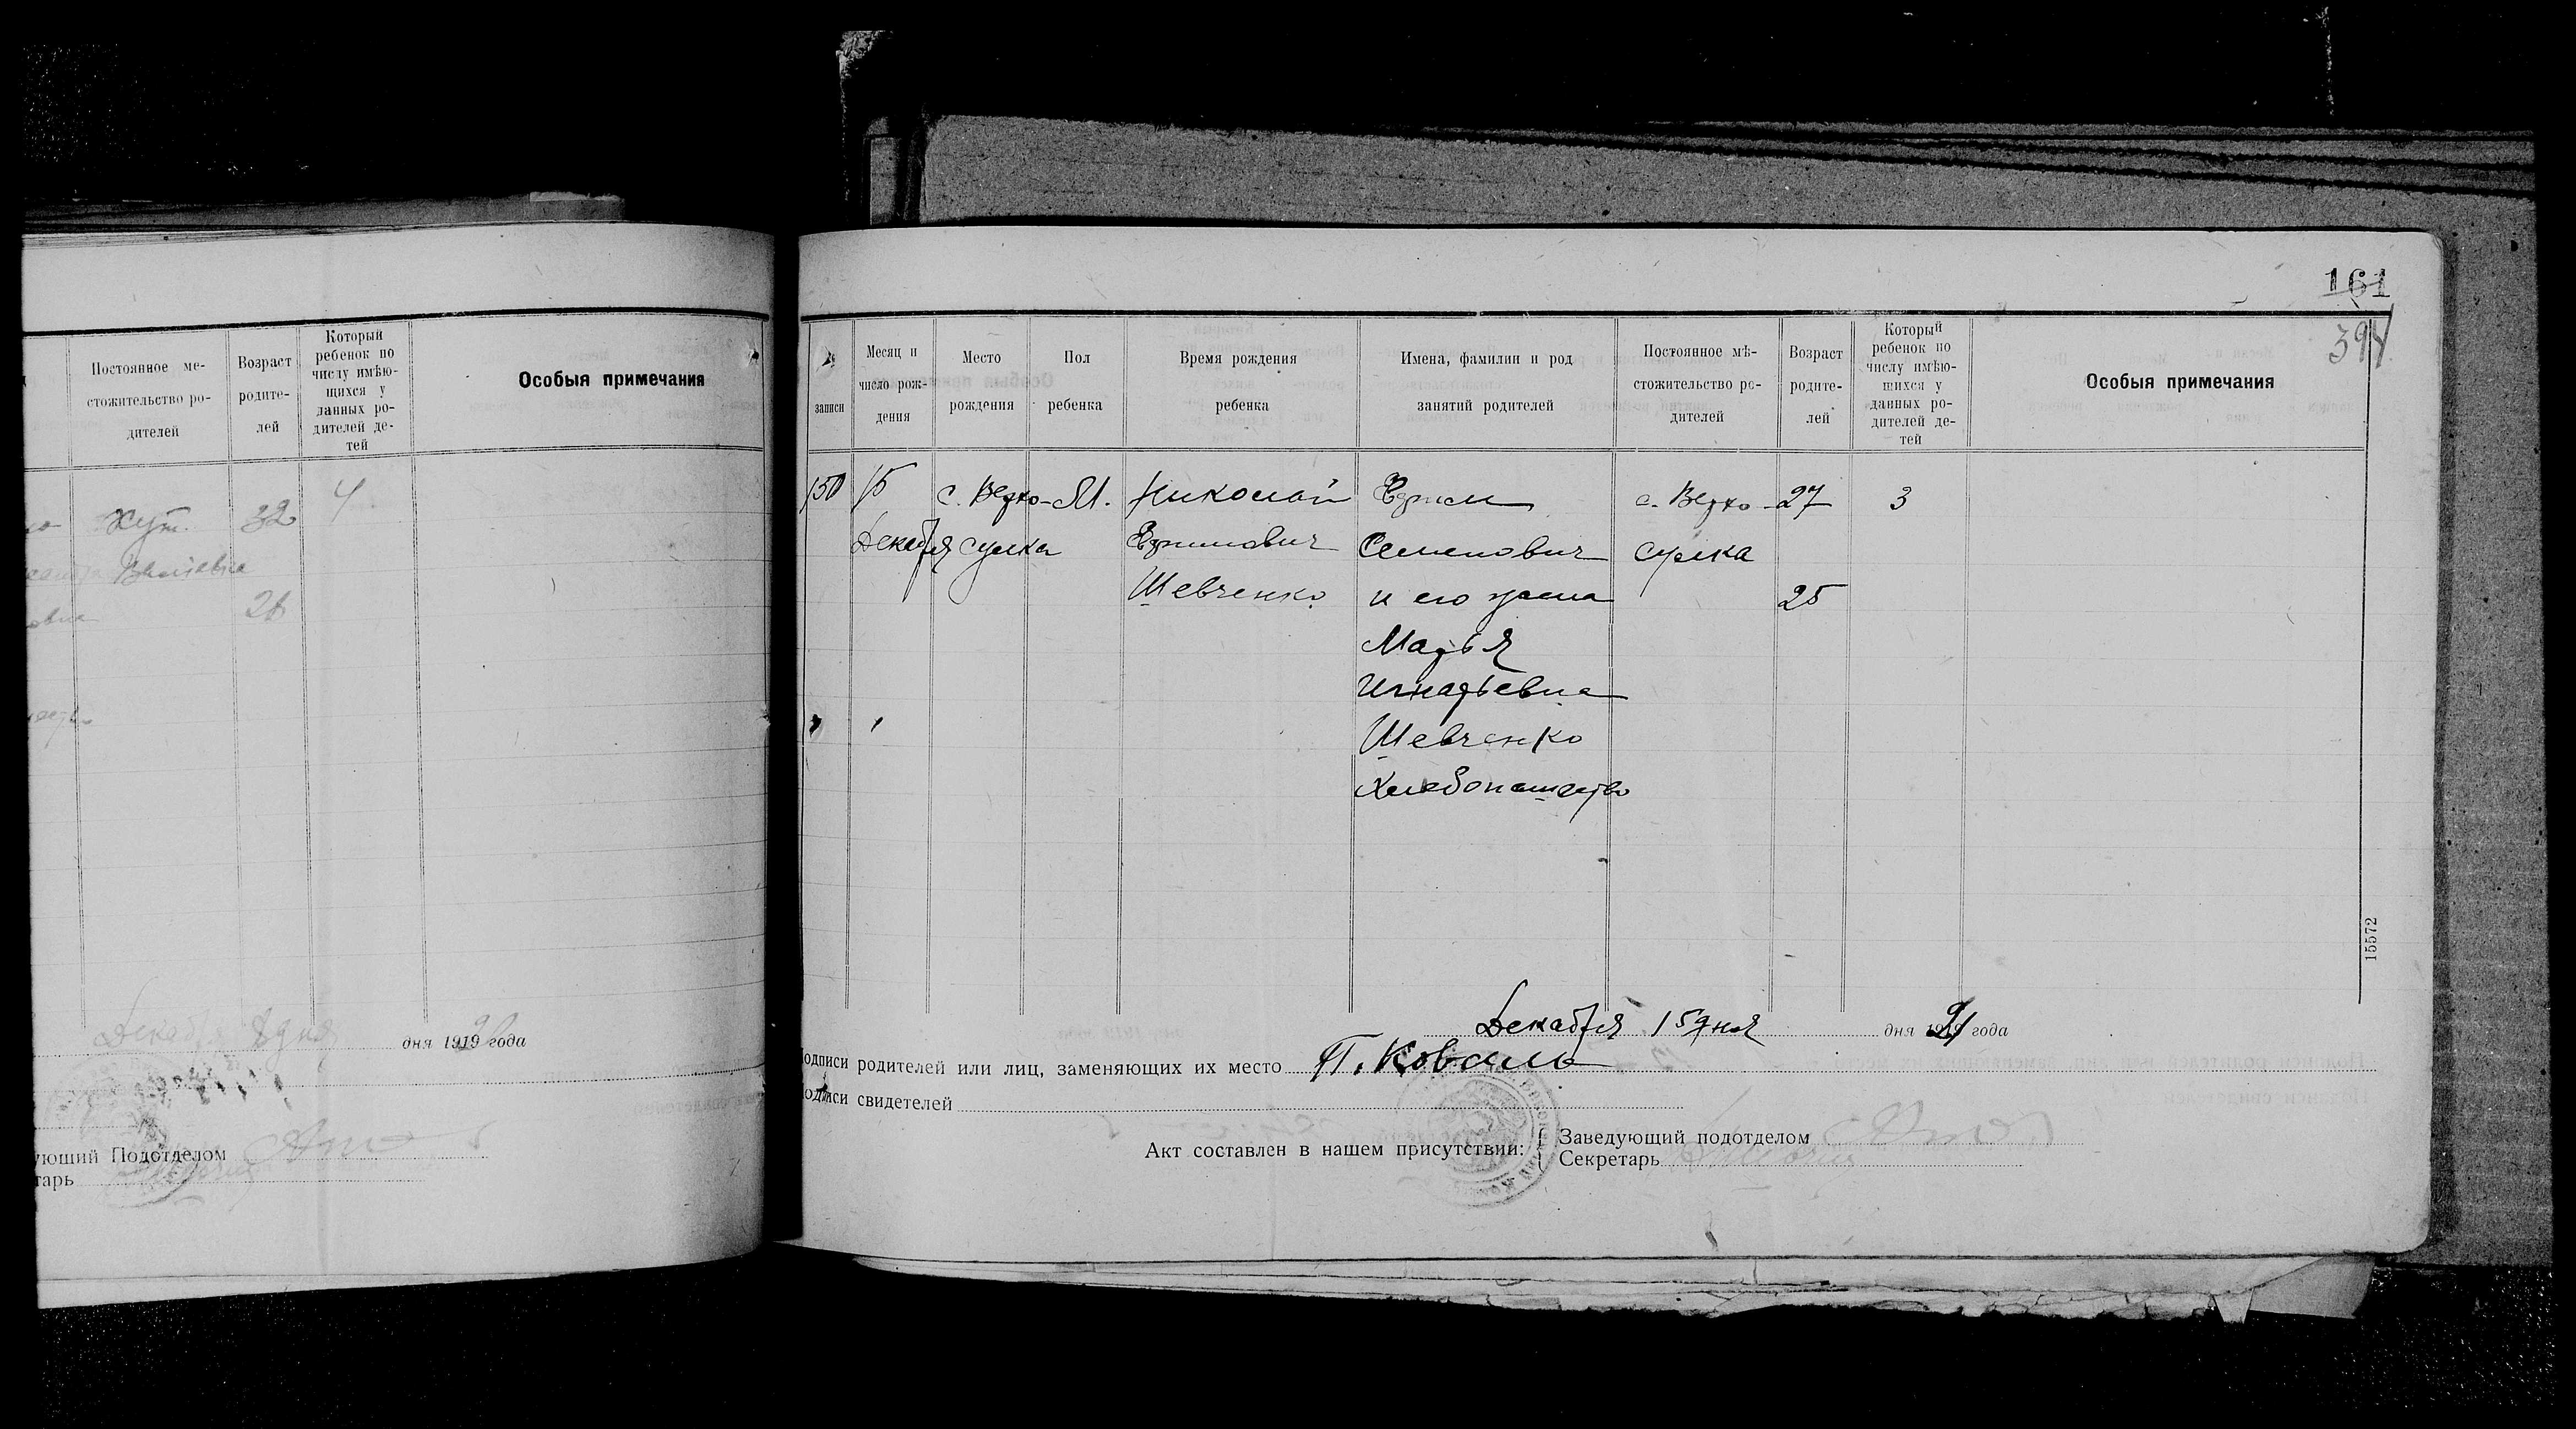 Постоянное ме-
стожительство ро-
дителей
Возраст
родите-
лей
Который
ребенок по
числу имѣю-
щихся у
данных ро-
дителей де-
тей
Особыя примечания
Хут.
32
4
26
Декабря 8 дня дня 1919 года
ующий Подотделом
тарь
161
394
№
записи
Месяц и
число рож-
дения
Место
рождения
Пол
ребенка
Время рождения
ребенка
Имена, фамилии и род
занятий родителей
Постоянное мѣ-
стожительство ро-
дителей
Возраст
родите-
лей
Который
ребенок по
числу имѣю-
щихся у
данных ро-
дителей де-
тей
Особыя примечания
150 15 с. Верхо- М. Николай Ефим с. Верхо- 27 3
Декабря сулка Ефимович Семенович сулка
Шевченко и его жена 25
Марья
Игнатьевна
Шевченко
Хлебопашество
15572
Декабря 15 дня дня 1921 года
Подписи родителей или лиц, заменяющих их место П. Коваль
Подписи свидетелей
Акт составлен в нашем присутствии: { Заведующий подотделом
Секретарь